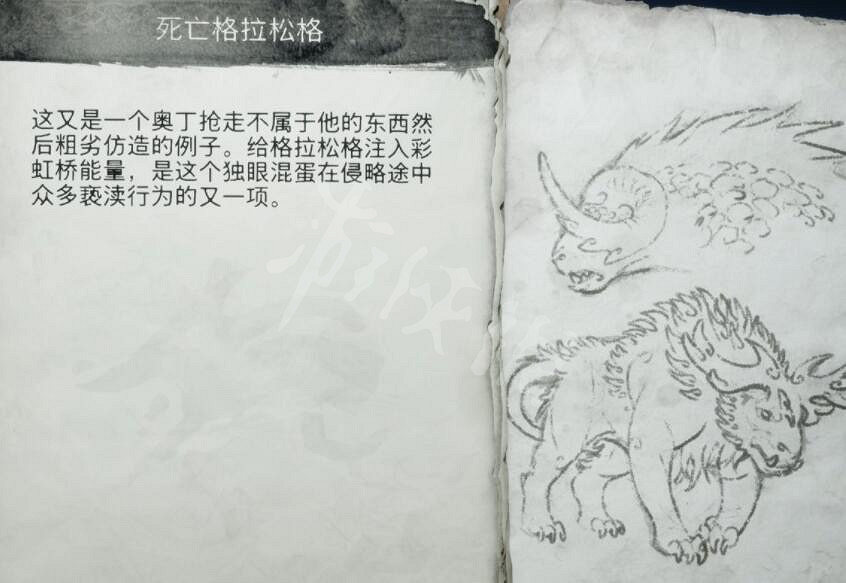 死亡格拉松格
这又是一个奥丁抢走不属于他的东西然
后粗劣仿造的例子。给格拉松格注入彩
虹桥能量，是这个独眼混蛋在侵略途中
众多亵渎行为的又一项。